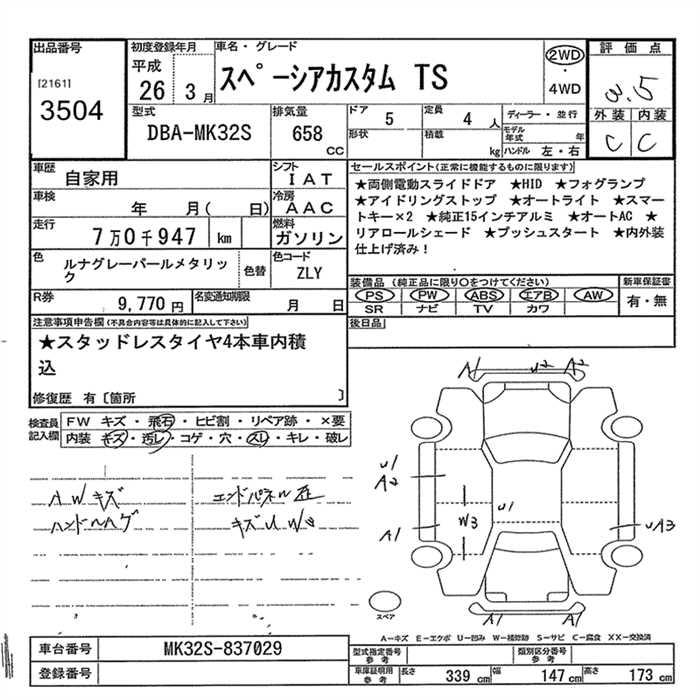 出品番号
[2161]
3504
初度登録年月
平成
26 3月
車名・グレード
スペーシアカスタム TS
2WD
・
4WD
評価点
3.5
外装 内装
C C
型式
DBA-MK32S
排気量
658
CC
ドア
5
定員
4 人
形状
積載
kg
ディーラー・並行
モデル年式 年
ハンドル 左・右
車歴
自家用
シフト
IAT
車検
年 月( 日)
冷房
AAC
走行
7万0千947 km
燃料
ガソリン
色
ルナグレーパールメタリック
色替
色コード
ZLY
R券
9,770円
名変通知期限
月 日
セールスポイント(正常に機能するものに限ります)
★両側電動スライドドア ★HID ★フォグランプ
★アイドリングストップ ★オートライト ★スマー
トキー×2 ★純正15インチアルミ ★オートAC ★
リアロールシェード ★プッシュスタート ★内外装
仕上げ済み!
装備品(純正品に限り○をつけてください)
PS PW ABS エアB AW
SR ナビ TV カワ
新車保証書
有・無
後日品
注意事項申告欄(不具合内容等は具体的に記入して下さい)
★スタッドレスタイヤ4本車内積
込
修復歴 有〔箇所 〕
検査員
記入欄
FW キズ・飛石・ヒビ割・リペア跡・×要
内装 キズ・汚レ・コゲ・穴・スレ・キレ・破レ
AWキズ
ハンドルハゲ
エンドパネル歪
キズU
A1 U2 A2
U1
A2
A1
W3
U1
UA3
A1 A1
スペア
A−キズ E−エクボ U−凹み W−補修跡 S−サビ C−腐食 XX−交換済
車台番号
MK32S-837029
登録番号
型式指定番号
参考
類別区分番号
参考
車庫証明用
参考
長さ 339 cm 幅 147 cm 高さ 173 cm